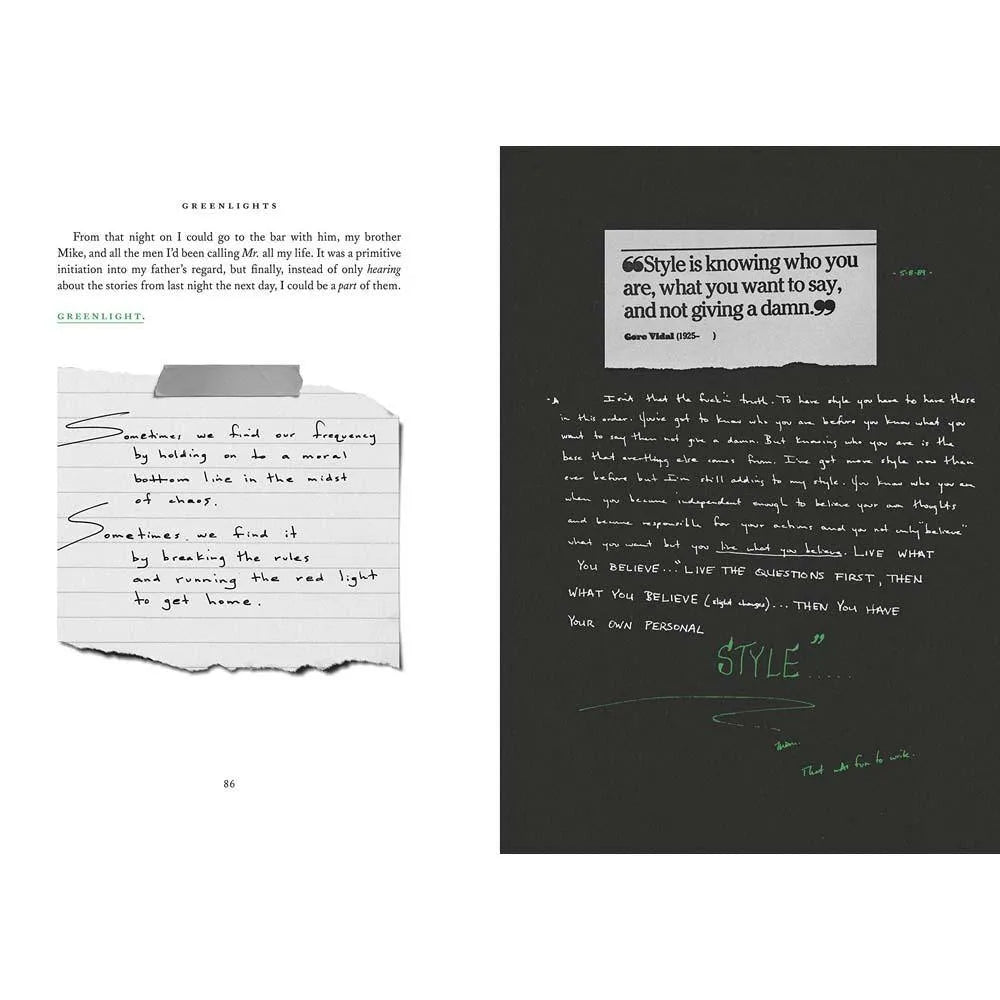 GREENLIGHTS
From that night on I could go to the bar with him, my brother
Mike, and all the men I'd been calling Mr. all my life. It was a primitive
initiation into my father's regard, but finally, instead of only hearing
about the stories from last night the next day, I could be a part of them.
GREENLIGHT.
Sometimes we find our frequency
by holding on to a moral
bottom line in the midst
of chaos.
Sometimes we find it
by breaking the rules
and running the red light
to get home.
86
❝Style is knowing who you
are, what you want to say,
and not giving a damn.❞
Gore Vidal (1925– )
- 5-8-89 -
Isn't that the fuckin truth. To have style you have to have these
in this order. You've got to know who you are before you know what you
want to say then not give a damn. But knowing who you are is the
base that everything else comes from. I've got more style now than
ever before but I'm still adding to my style. You know who you are
when you become independent enough to believe your own thoughts
and become responsible for your actions and you not only "believe"
what you want but you live what you believe. LIVE WHAT
YOU BELIEVE..."LIVE THE QUESTIONS FIRST, THEN
WHAT YOU BELIEVE (slight changes)... THEN YOU HAVE
YOUR OWN PERSONAL
STYLE".....
That was fun to write.